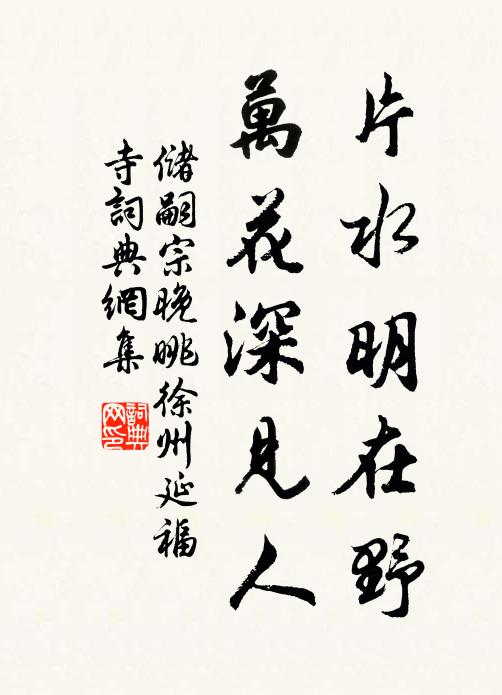 片水明在野
萬花深見人
儲嗣宗晚眺徐州延福
寺詞典網集
詞典
网印